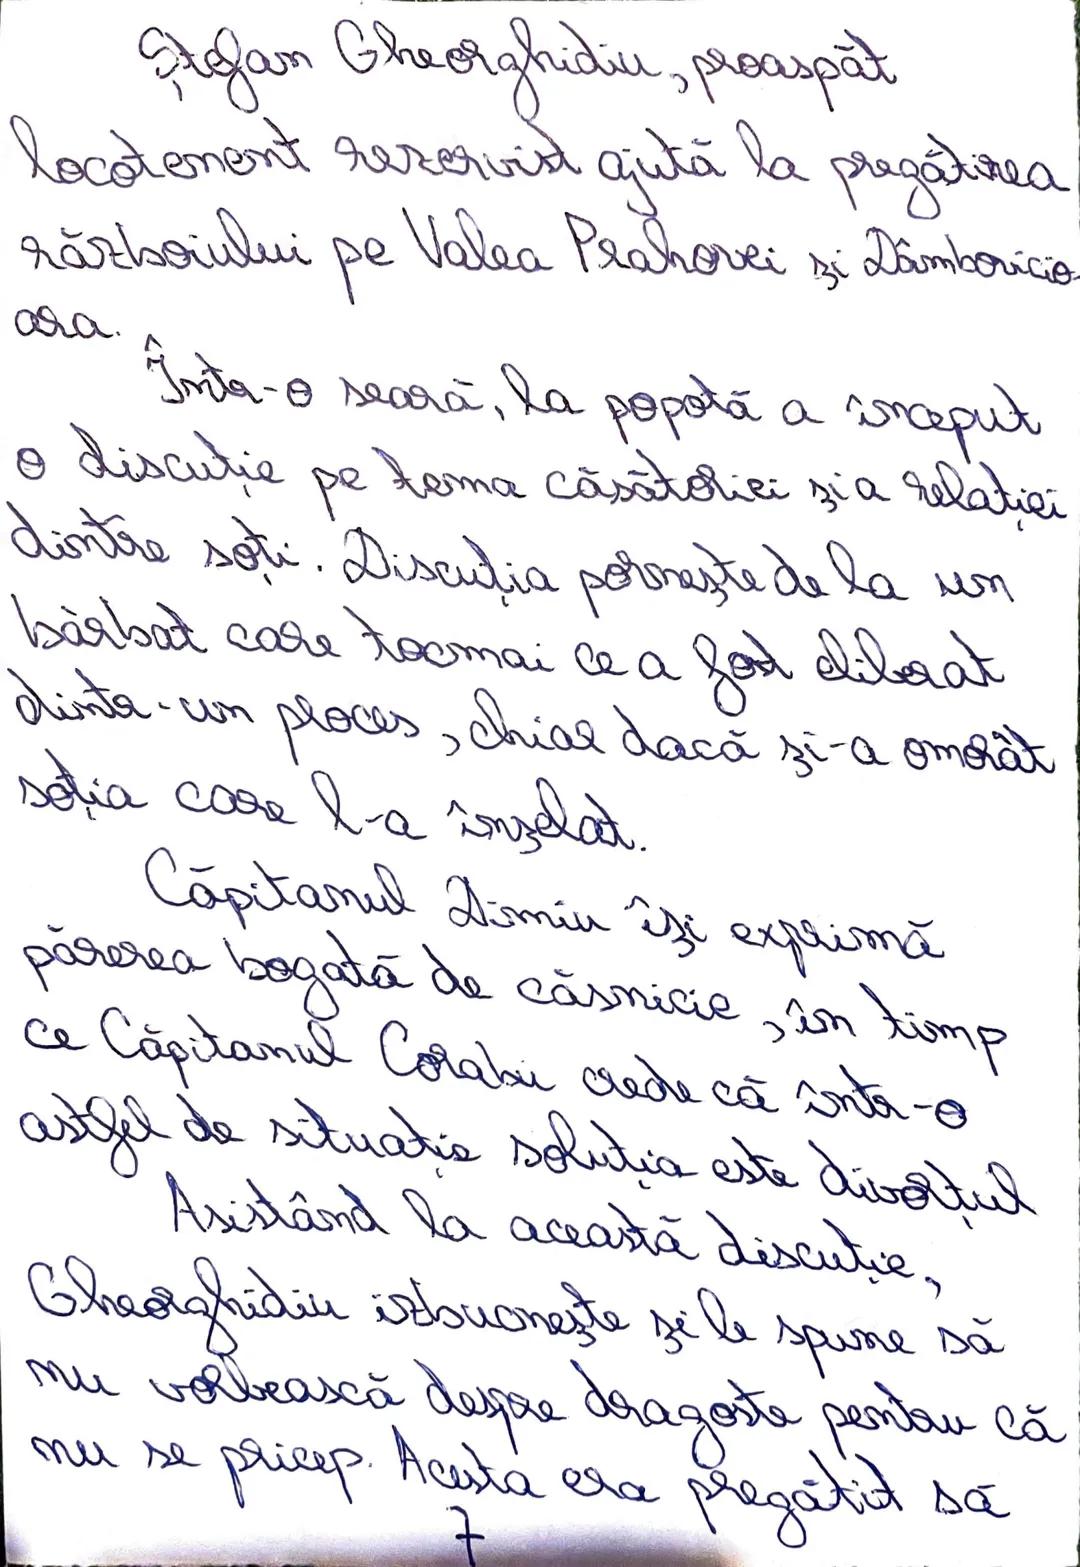 Ștefan Gheorghidiu, proaspăt
locotenent rezervist ajută la pregătirea
războiului pe Valea Prahovei și Dâmbovicio-
ara.
Într-o seară, la popotă a început
o discuție pe tema căsătoriei și a relației
dintre soți. Discuția pornește de la un
bărbat care tocmai ce a fost eliberat
dintr-un proces, chiar dacă și-a omorât
soția care l-a înșelat.
Căpitanul Dimiu își exprimă
părerea bogată de căsnicie, în timp
ce Căpitanul Corabu crede că într-o
astfel de situație soluția este divorțul
Asistând la această discuție,
Gheorghidiu izbucnește și le spune să
nu vorbească despre dragoste pentru că
nu se pricep. Acesta era pregătit să
7